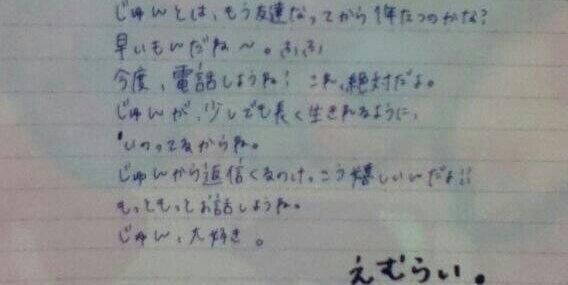 じゅんとは、もう友達なってから1年たつのかな?
早いもんだね〜。ふふ
今度、電話しようね! これ、絶対だよ。
じゅんが、少しでも長く生きれるように、
いのってるからね。
じゅんから返信くるのけっこう嬉しいんだよ!!
もっともっとお話しようね。
じゅん、大好き。
えむらい。